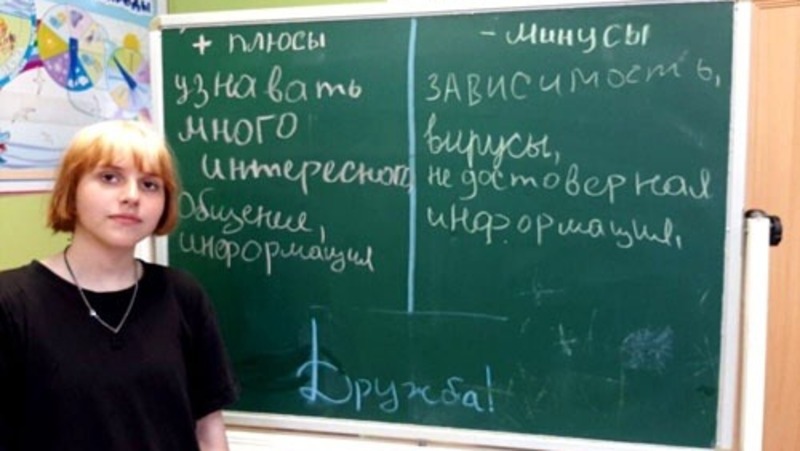 + плюсы
узнавать
много
интересного,
Общение,
информация
- минусы
зависимость,
вирусы,
недостоверная
информация,
Дружба!